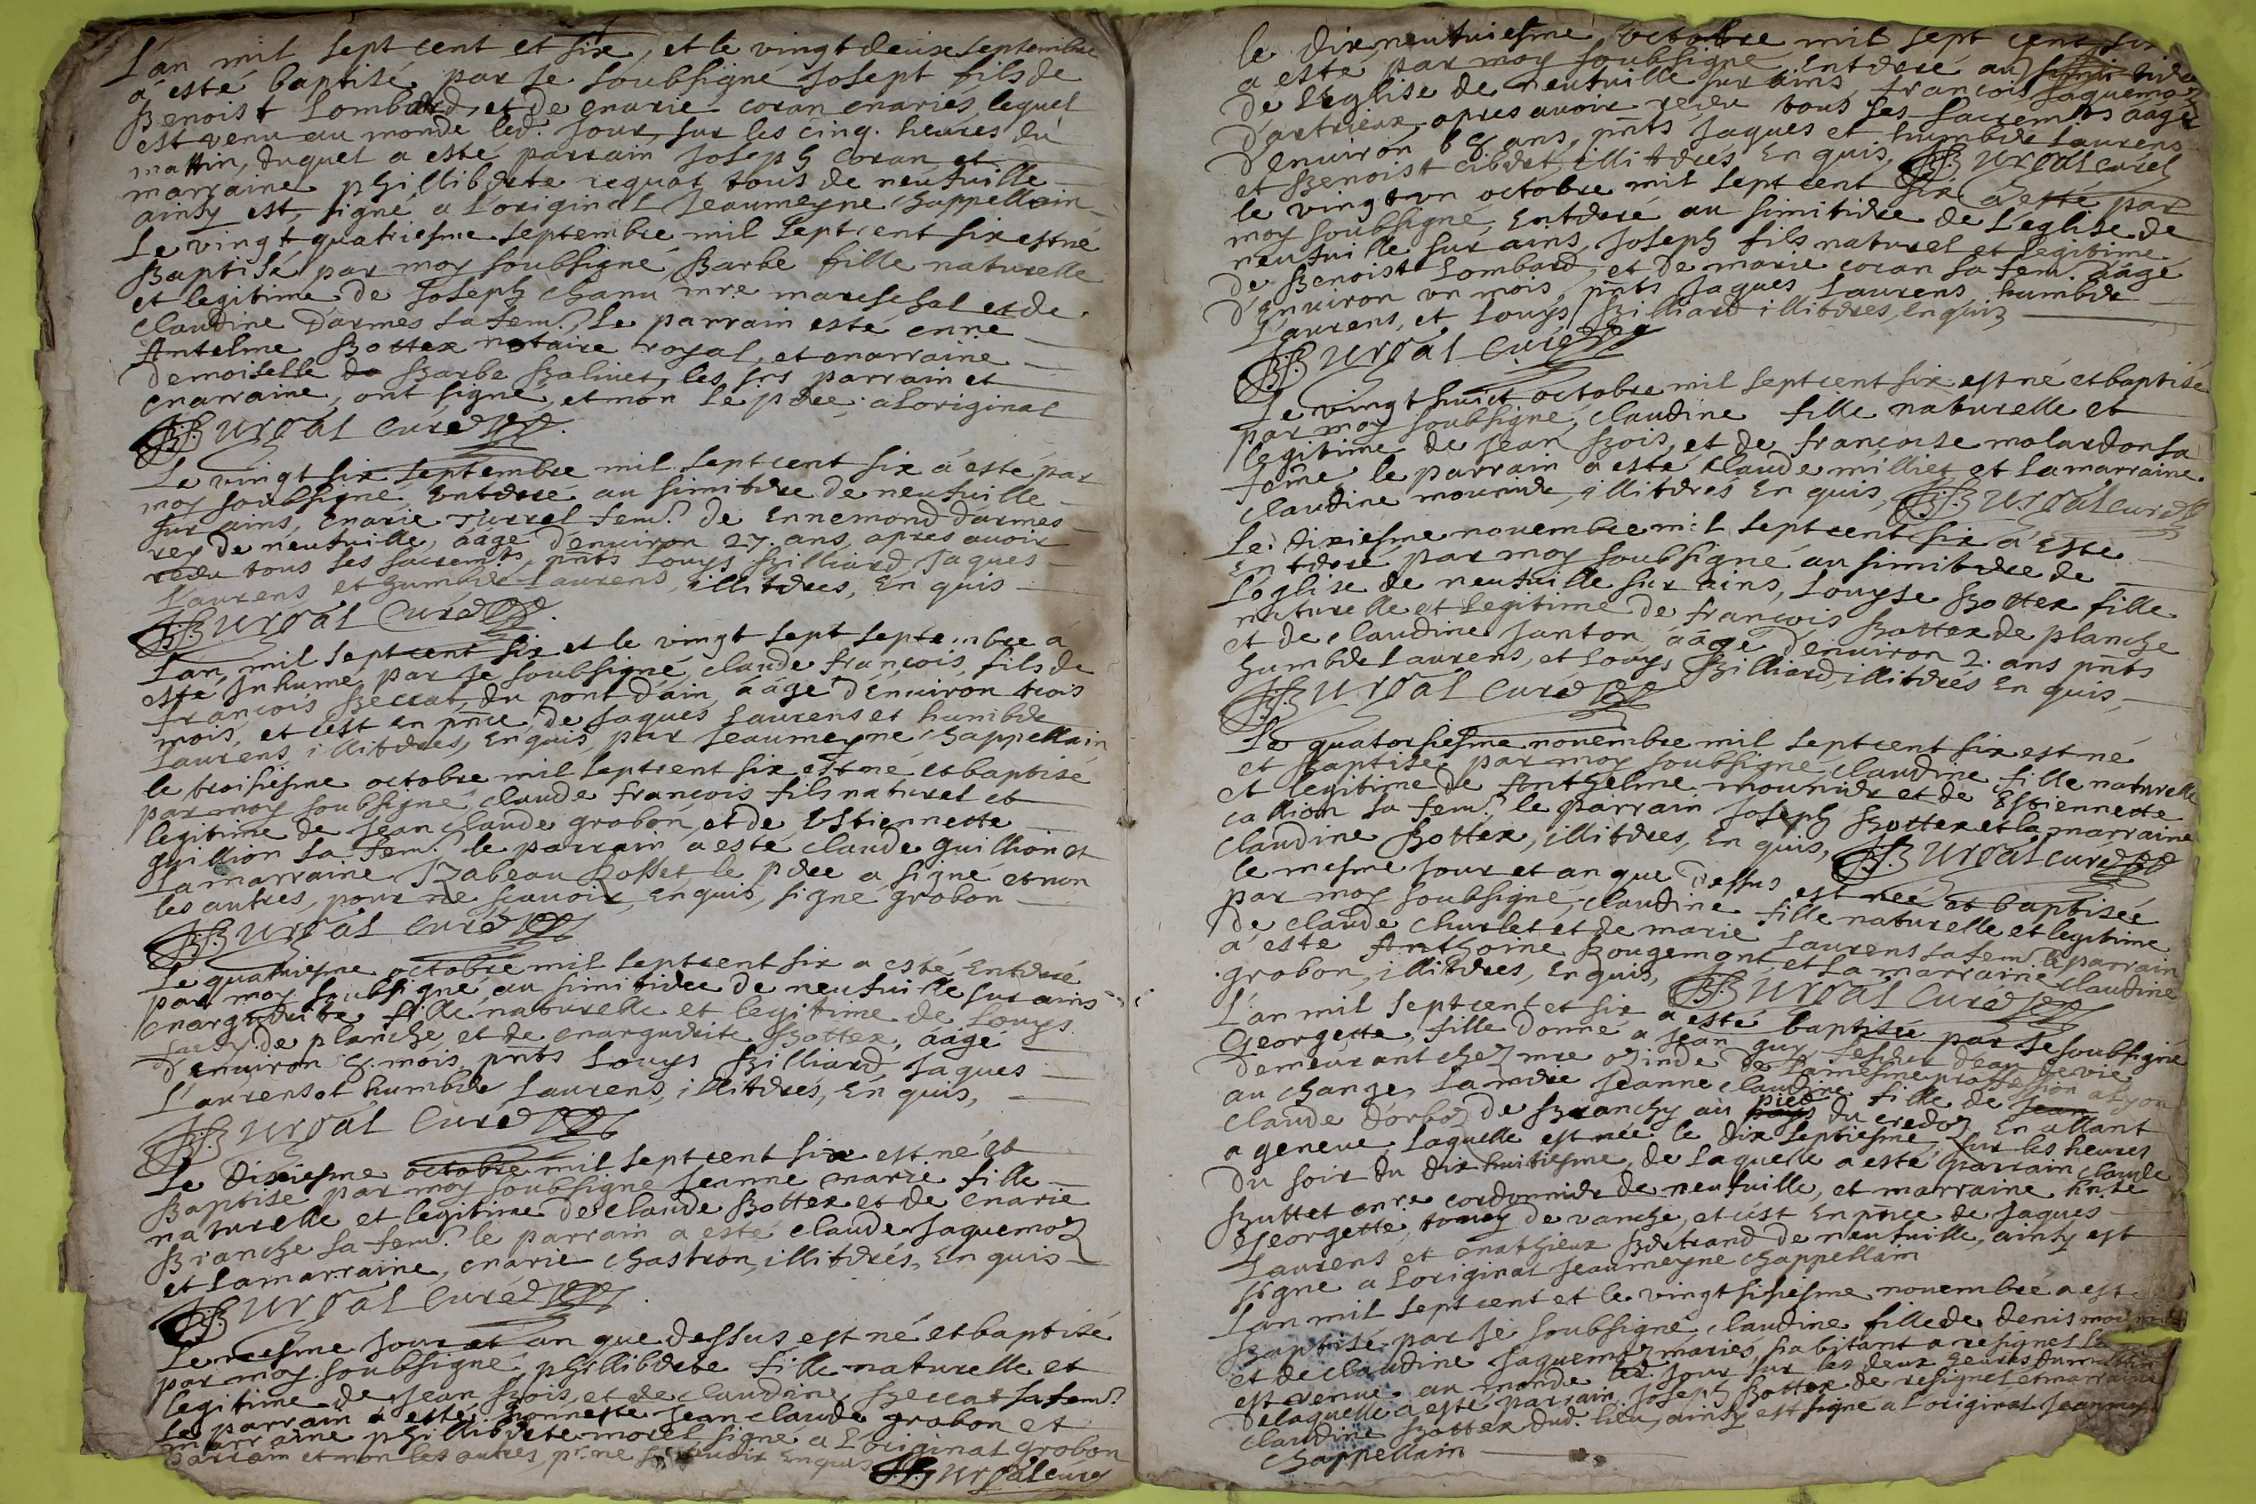 L'an mil sept cent et six, et le vingt deux septembre
a esté baptisé par Je soubsigné Josept fils de
Benoist Lombard, et de marie coran mariés, lequel
est venu au monde led. Jour, sur les cinq. heures du
mattin, duquel a esté parrain Joseph Coran et
marraine phillibdrte tous de neufuille
ainsy est signé a Loriginal Jeaumeyne Chappellain
Le vingt quatriesme septembre mil sept cent six est né
Baptisé par moy soubsigné Barbe fille naturelle
et legitime de Joseph Chanu mre mareschal et de
Claudine Darmes sa fem. Le parrain este
Antelme Bottex notaire royal, et marraine
Demoiselle Barbe Balivet, les srs parrain et
marraine, ont signé, et non le pdre, a Loriginal
B Curé
Le vingt six septembre mil sept cent six a esté par
moy soubsigné Entdrré au simitdre de neufuille
sur ains, marie Turrel fem. de Ennemond Darmes
rey de neufuille, aage d'enuiron 27. ans, apres auoir
receu tous ses sacremts, pnts Louys Billiard, Jaques
Laurens et humbdr Laurens, illitdrés, Enquis
B Curé
L'an, mil sept cent six et le vingt sept septembre a
esté Inhumé par Je soubsigné, claude françois, fils de
françois Beccat, du pont dain, aagé d'Enuiron trois
mois, et c'est en pnce de Jaques Laurens et humbdr
Laurens, illitdrés, Enquis, par Jeaumeyne Chappellain
le troisiesme octobre mil sept cent six est né, et baptisé
par moy soubsigné, claude françois fils naturel et
legitime de Jean claude grobon, et de Estiennette
guillion sa fem. le parrain a esté claude guillion et
la marraine Izabeau Rosset le pdre a signé et non
les autres, pour ne sçauoir, enquis, signé grobon
B Curé
Le quatriesme octobre mil sept cent six a esté Entdrré
par moy soubsigné, au simitidre de neufuille sur ains
margudrite, fille naturelle et legitime de Louys
de planche, et de margudrite Bottex, aagé
d'Enuiron mois, pnts Louys Billiard, Jaques
Laurens et humbdr Laurens, illitdrés, Enquis,
B Curé
Le Dixiesme octobre mil sept cent six est né et
Baptisé par moy soubsigné Jeanne marie fille
naturelle et legitime de claude Bottex et de marie
Branche sa fem. le parrain a esté claude Jaquemoz
et la marraine, marie chastron, illitdrés, Enquis
B Curé
Le mesme Jour et an que dessus est né et baptisé
par moy soubsigné, phillibdrte fille naturelle et
legitime de Jean Bois, et de claudine Beccat sa fem.
Le parrain a esté honneste Jean claude grobon et
marraine phillibdrte morel signé a Loriginal grobon
parrain et non les autres, pr. ne sçauoir enquis B curé
le dixneufuiesme octobre mil sept cent six
a esté par moy soubsigné Entdrré au simitidre
de Leglise de neufuille sur ains, françois Jaquemoz
d'artrieux, apres auoir receu tous ses sacremts aagé
d'enuiron 68 ans, pnts Jaques et humbdr Laurens
et Benoist illitdrés Enquis, B curé
le vingt vn octobre mil sept cent six a esté par
moy soubsigné, Entdrré au simitidre de L'eglise de
neufuille sur ains, Joseph fils naturel et legitime
de Benoist Lombard, et de marie coran sa fem. aagé
d'Enuiron vn mois, pnts Jaques Laurens, humbdr
Laurens, et Louys Billiard illitdrés, enquis
B Curé
Le vingt huict octobre mil sept cent six est né et baptisé
par moy soubsigné, claudine fille naturelle et
legitime de Jean Bois, et de françoise molardon sa
feme, le parrain a esté claude milliet et la marraine
claudine mounidr, illitdrés Enquis, B curé
Le Dixiesme nouembre mil sept cent six a Esté
Entdrré par moy soubsigné au simitdre de
L'eglise de neufuille sur ains, Louyse Bottex fille
naturelle et legitime de françois Bottex de planche
et de claudine Janton, aagé d'enuiron 2. ans pnts
humbdr Laurens, et Louys Billiard, illitdrés Enquis,
B Curé
Le quatorsiesme nouembre mil sept cent six est né
et Baptisé par moy soubsigné claudine fille naturelle
et legitime de Anthelme mounidr et de Estiennette
callion sa fem. le parrain Joseph Bottex et la marraine
Claudine Bottex, illitdrés, Enquis, B curé
le mesme Jour et an que dessus est neé et baptiséé
par moy soubsigné, claudine fille naturelle et legitime
de claude churlet et de marie Laurens sa fem. le parrain
a esté Anthoine Rougemont, et la marraine claudine
grobon, illitdrés, Enquis, B Curé
L'an mil sept cent et six a esté baptisée par Je soubsigné
Georgette, fille donné a Jean guy d'eau de vie
demeurant chez mre de la mesme profession a Lyon
au change, la mdre Jeanne claudine fille de Jean
Claude Dorboz de Branchy au pied du credoz En allant
a geneue, laquelle est née le dix septiesme, sur les heures
du soir du dix huitiesme, de laquelle a esté parrain claude
Buttet mre cordonnidr de neufuille, et marraine Ante
Georgette, de vanche, et c'est En pnce de Jaques
Laurens et mathieux Bdrtrand de neufuille, ainsy est
signé a Loriginal Jeaumeyne Chappellain
L'an mil sept cent et le vingt sisiesme nouembre a esté
Baptisé par Je soubsigné claudine fille de denis
et de claudine Jaquemoz mariés habitant a resignel
est venue au monde led. Jour sur les deux heures du mattin
delaquelle a esté parrain Joseph Bottex de resignel et marraine
claudine Bottex dud. Lieu, ainsy est signé a Loriginal
Chappellain